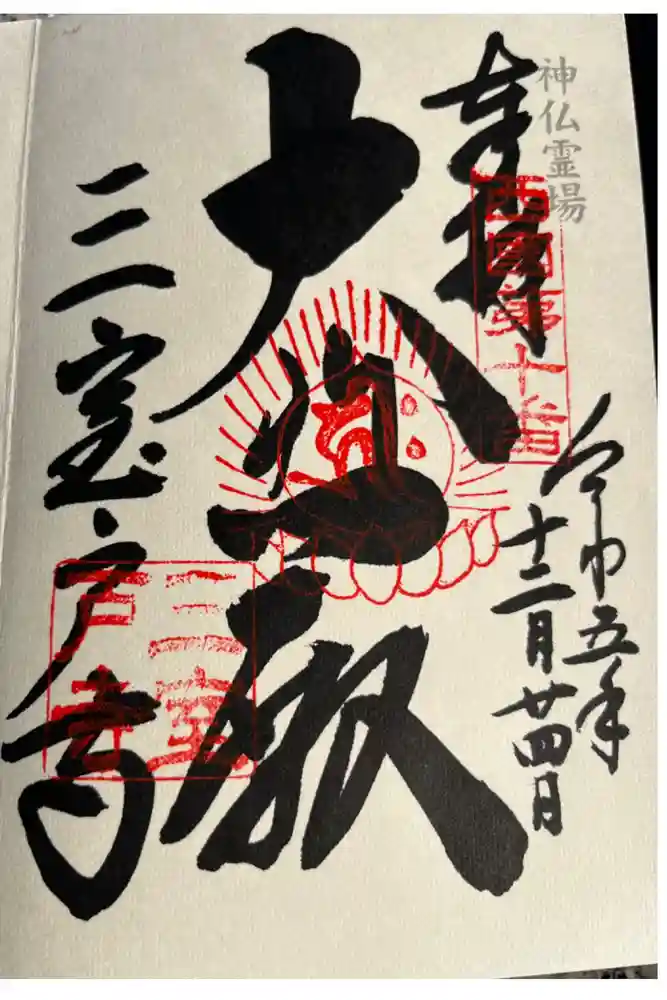 神仏霊場
奉拝
西國第十番
令和五年
十二月廿四日
大悲殿
三室戸寺
三室
戸寺